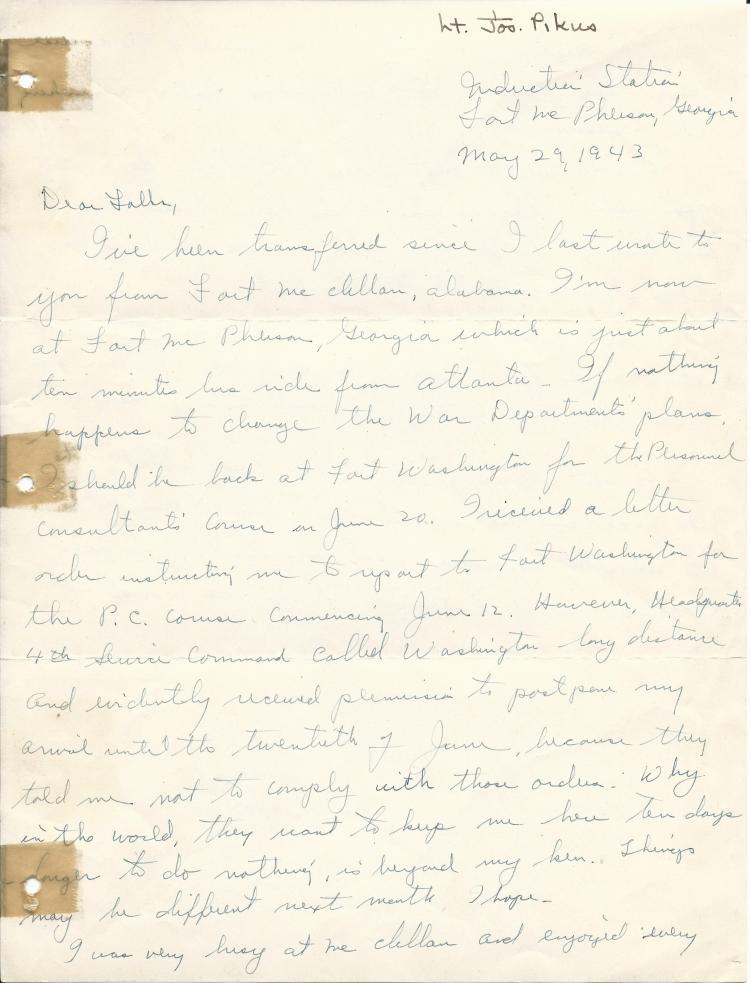 Lt. Jos. Pikus
Induction Station
Fort Mc Pherson, Georgia
May 29, 1943
Dear Folks,
I've been transferred since I last wrote to
you from Fort Mc Clellan, Alabama. I'm now
at Fort Mc Pherson, Georgia which is just about
ten minutes bus ride from Atlanta. If nothing
happens to change the War Departments' plans,
I should be back at Fort Washington for the Personnel
Consultants' Course on June 20. I received a letter
order instructing me to report to Fort Washington for
the P.C. course commencing June 12. However, Headquarters
4th Service Command called Washington long distance
and evidently received permission to postpone my
arrival until the twentieth of June, because they
told me not to comply with those orders. Why
in the world, they want to keep me here ten days
longer to do nothing, is beyond my ken. Things
may be different next month I hope.
I was very busy at Mc Clellan and enjoyed every